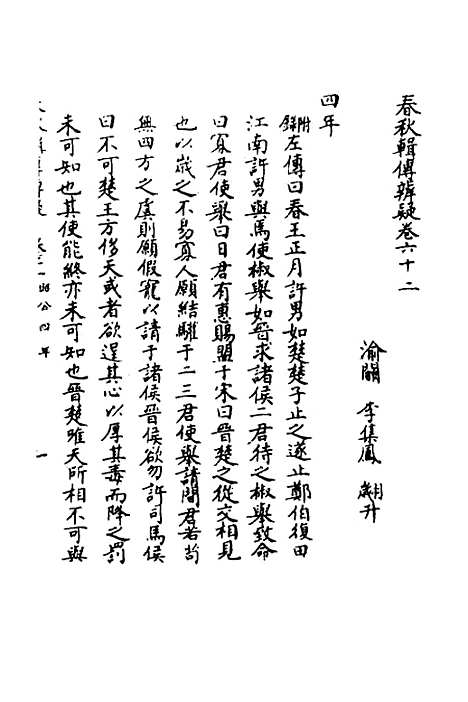 春秋輯傳辨疑卷六十二
渝關 李集鳳 翽升
四年
附錄左傳曰春王正月許男如楚楚子止之遂止鄭伯復田
江南許男與焉使椒舉如晉求諸侯二君待之椒舉致命
曰寡君使舉曰日君有惠賜盟于宋曰晉楚之從交相見
也以歲之不易寡人願結驩于二三君使舉請閒君若苟
無四方之虞則願假寵以請于諸侯晉侯欲勿許司馬侯
曰不可楚王方侈天或者欲逞其心以厚其毒而降之罰
未可知也其使能終亦未可知也晉楚唯天所相不可與
卷六十二 昭公四年 一